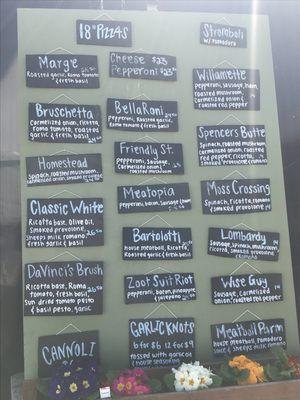 18" Pizzas
Stromboli
w/ Pomodoro
Marge
Roasted garlic, Roma tomato
& fresh basil
Cheese $23
Pepperoni
Willamette
pepperoni, sausage, ham,
roasted mushroom,
carmelized onion &
roasted red pepper
Bruschetta
Carmelized onion, ricotta,
Roma tomato, roasted
garlic & fresh basil
BellaRoni
Pepperoni, Roasted garlic
& fresh basil
Spencers Butte
Spinach, roasted mushroom,
carmelized onion, roasted
red pepper, ricotta
& smoked provolone
Friendly St.
Pepperoni, Sausage,
Homestead
Spinach, roasted mushroom,
carmelized onion
Meatopia
pepperoni, sausage, ham, bacon
Moss Crossing
Spinach, ricotta,
Roma tomato, roasted garlic
& smoked provolone
Classic White
Ricotta base, Olive oil,
Smoked provolone,
sheeps milk romano,
fresh garlic &
fresh basil
Bartolotti
house meatball, ricotta,
roasted garlic
& fresh basil
Lombardy
Sausage, spinach, mushroom
& smoked provolone
DaVinci's Brush
Ricotta base, Roma
tomato, fresh basil,
Sun dried tomato pesto
& basil pesto
Zoot Suit Riot
pepperoni, bacon, pineapple
& jalapeno
Wise Guy
Sausage, carmelized
onion, roasted red pepper
Cannoli
Garlic Knots
6 for $ 12 for $9
tossed with garlic oil
& house seasoning
Meatball Parm
House meatball, Pomodoro
& Sheeps milk romano